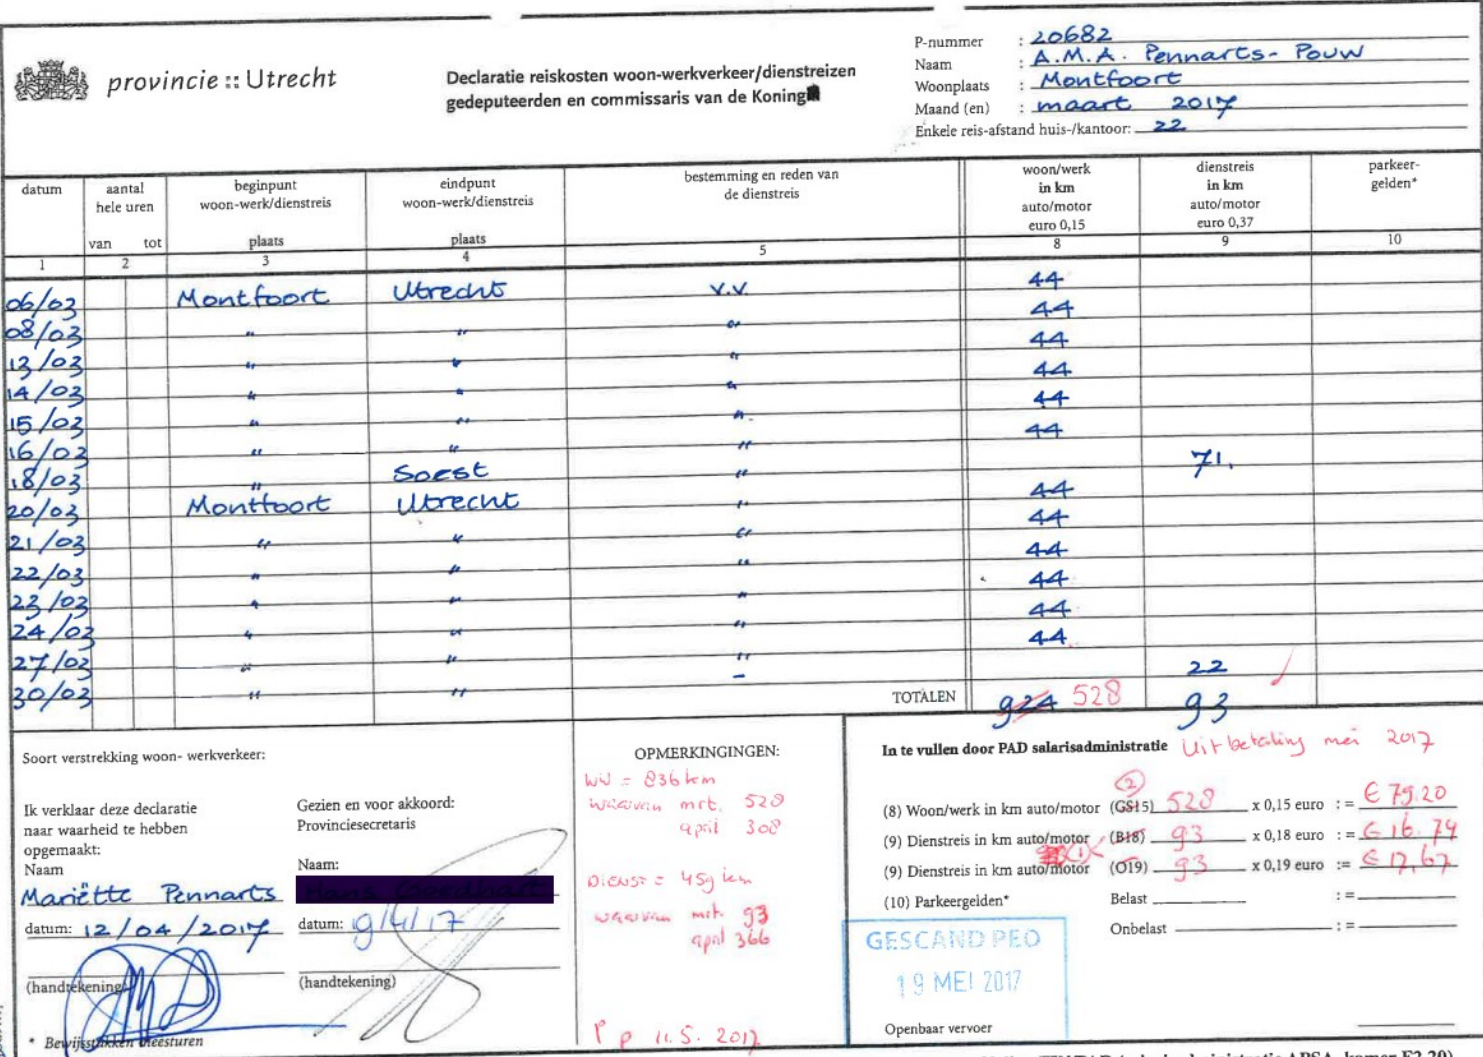 provincie :: Utrecht
Declaratie reiskosten woon-werkverkeer/dienstreizen
gedeputeerden en commissaris van de Koning
P-nummer : 20682
Naam : A.M.A. Pennarts-Pouw
Woonplaats : Montfoort
Maand (en) : maart 2017
Enkele reis-afstand huis-/kantoor: 22
datum aantal hele uren van tot beginpunt woon-werk/dienstreis plaats eindpunt woon-werk/dienstreis plaats bestemming en reden van de dienstreis woon/werk in km auto/motor euro 0,15 dienstreis in km auto/motor euro 0,37 parkeer-gelden*
1 2 3 4 5 8 9 10
06/03 Montfoort Utrecht v.v. 44
08/03 " " " 44
13/03 " " " 44
14/03 " " " 44
15/03 " " " 44
16/03 " " " 44
18/03 " Soest " 71.
20/03 Montfoort Utrecht " 44
21/03 " " " 44
22/03 " " " 44
23/03 " " " 44
24/03 " " " 44
27/03 " " " 44
30/03 " " - 22
TOTALEN 924 528 93
Soort verstrekking woon- werkverkeer:
Ik verklaar deze declaratie
naar waarheid te hebben
opgemaakt:
Naam
Mariëtte Pennarts
datum: 12/04/2017
(handtekening)
* Bewijsstukken meesturen
Gezien en voor akkoord:
Provinciesecretaris
Naam:
datum: 19/4/17
(handtekening)
OPMERKINGINGEN:
WW = 836 km
waarvan mrt. 528
april 308
Dienst = 459 km
waarvan mrt. 93
april 366
P p 11.5.2017
In te vullen door PAD salarisadministratie Uitbetaling mei 2017
(2)
(8) Woon/werk in km auto/motor (GS15) 528 x 0,15 euro := € 79.20
(9) Dienstreis in km auto/motor (B18) 93 x 0,18 euro := € 16.74
(9) Dienstreis in km auto/motor (O19) 93 x 0,19 euro := € 17,67
(10) Parkeergelden* Belast :=
Onbelast :=
GESCAND PEO
19 MEI 2017
Openbaar vervoer